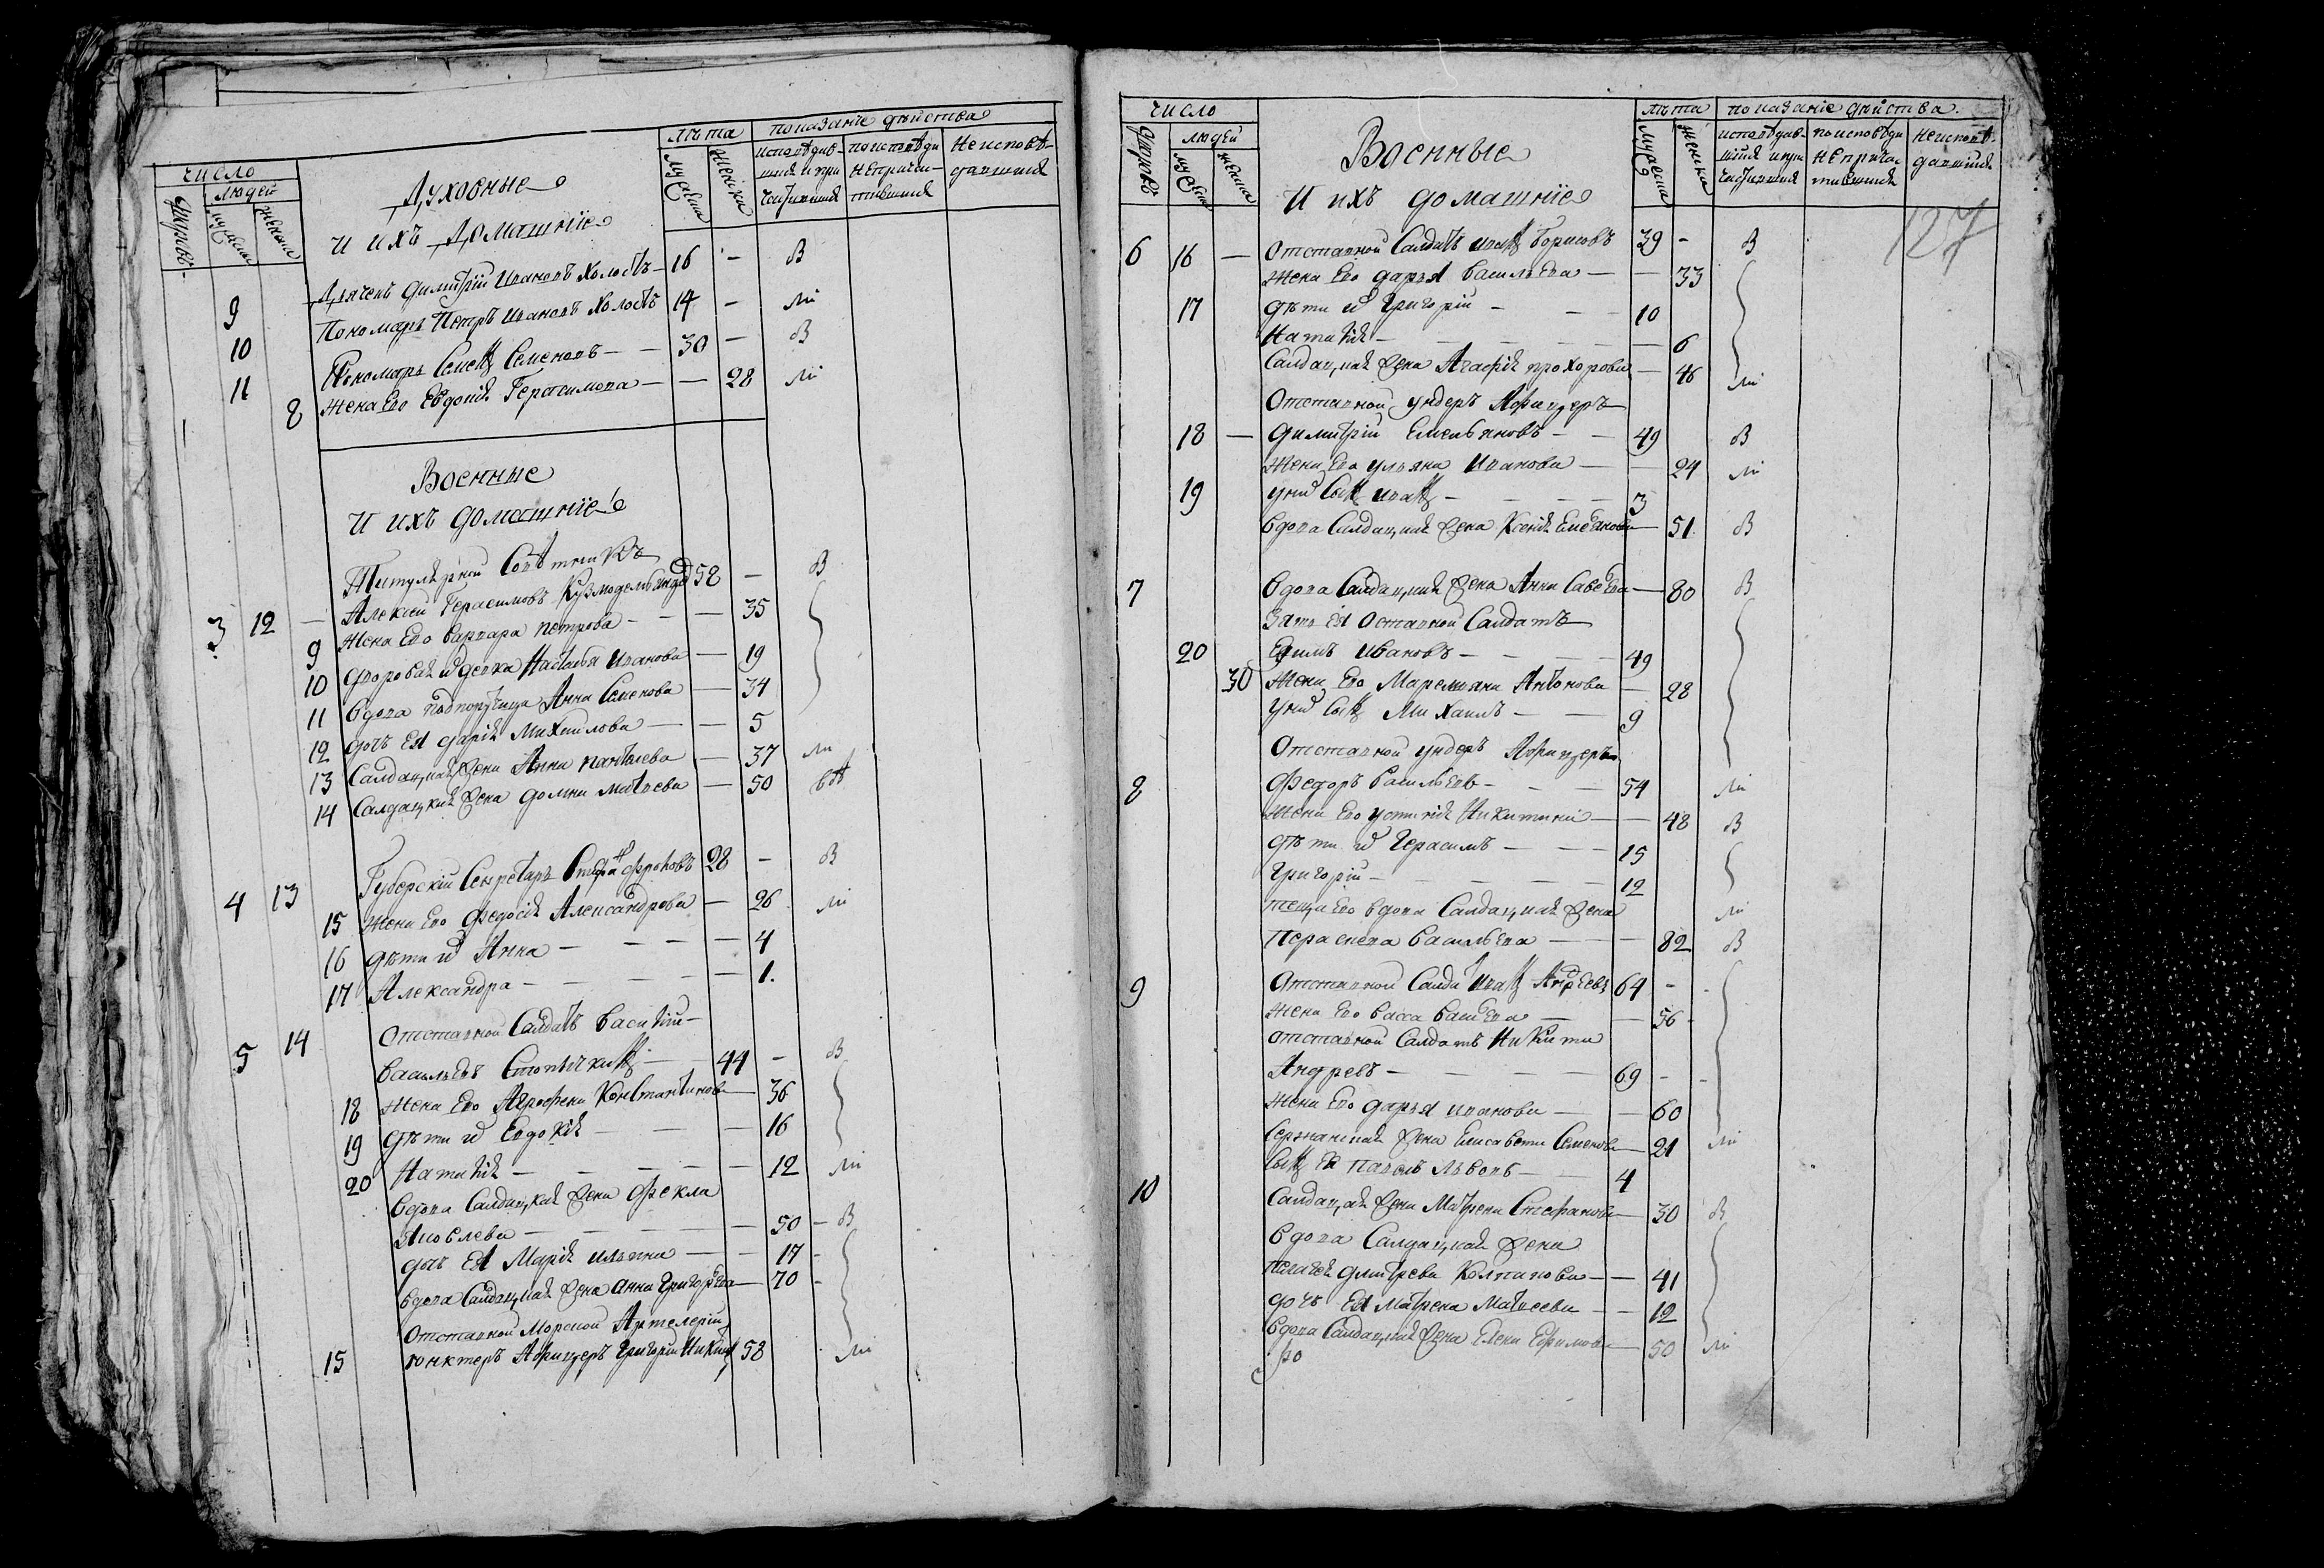 число
людей
дворовъ
мужеска
женска
Духовные
и ихъ домашние
лѣта
мужеска
женска
показанiе дѣйства
исповѣдавшихся и причастившихся
по исповѣди не причастившихся
не исповѣдавшихся
9 Дьячекъ Димитрiй Ивановъ холостъ 16 - В
10 Пономарь Петръ Ивановъ холостъ 14 - Ми
11 Пономарь Семенъ Семеновъ 30 - В
8 Жена Его Евдокiя Герасимова - 28 Ми
Военные
и ихъ домашнiе
Титулярной Советникъ
3 12 - Алексiй Герасимовъ 58 - В
9 Жена Его Варвара Петрова - 35
10 дворовая девка Наталья Иванова - 19
11 вдова Анна Семенова - 34
12 дочь Ея дарiя Михайлова - 5
13 Салдацкая жена Анна - 37 Ми
14 Салдацкая жена домна Матвеева - 50
4 13 Губерскiй Секретарь 28 - В
15 Жена Его Федосiя Александрова - 26 Ми
16 дѣти их Анна - 4
17 Александра - 1.
5 14 Отставной Салдатъ Василiй
Васильевъ 44 - В
18 Жена Его Агрофена Константинова 36
19 дѣти их Евдокiя - 16
20 Наталiя - 12 Ми
вдова Салдацкая жена Фекла
Яковлева - 50 - В
дочь Ея Марiя Ильина - 17 -
вдова Салдацкая жена Анна Григорьева 70 -
Отставной Морской Артелерiи
15 Юнктеръ Афицеръ Григорiй 58 Ми
число
людей
дворовъ
мужеска
женска
Военные
И ихъ домашнiе
лѣта
мужеска
женска
показанiе дѣйства.
исповѣдавшихся и причастившихся
по исповѣди не причастившихся
не исповѣдавшихся
127
6 16 - Отставной Салдатъ Иванъ Борисовъ 39 - В
Жена Его дарья Васильева - 33
17 дѣти их Григорiй - 10
Наталiя - 6
Салдацкая жена Агафiя Прохорова - 46 Ми
Отставной ундеръ Афицеръ
18 - Димитрiй Емельяновъ - 49 В
Жена Его Ульяна Иванова - 24 Ми
19 у них Сынъ Иванъ - 3
вдова Салдацкая жена Ксенiя Емельянова 51. В
7 вдова Салдацкая жена Анна Савельева - 80 В
Зять Ея Оставной Салдатъ
20 Ефимъ Ивановъ - 49
30 Жена Его Маремьяна Антонова - 28
у них Сынъ Михаилъ - 9
Отставной ундеръ Афицеръ
8 Федоръ Васильевъ - 54 Ми
Жена Его Устинiя Никитина - 48 В
дѣти их Герасимъ - 15
Григорiй - 12
теща Его вдова Салдацкая жена Ми
Парасковa Васильева - 82 В
9 Отставной Салда Иванъ Андреевъ 64 -
Жена Его Васса - 56 -
отставной Салдатъ Никита
Андревъ - 69 -
Жена Его дарья Иванова - 60
Сержанская жена Елисавета Семенова 21 Ми
Сынъ Ея Павелъ Львовъ - 4
10 Салдацкая жена Матрена Стефанова 30 В
вдова Салдацкая жена
Пелагея Дмитрева - 41
дочь Ея Матрена Матвеева - 12
вдова Салдацкая жена Елена Ефимова - 50 Ми